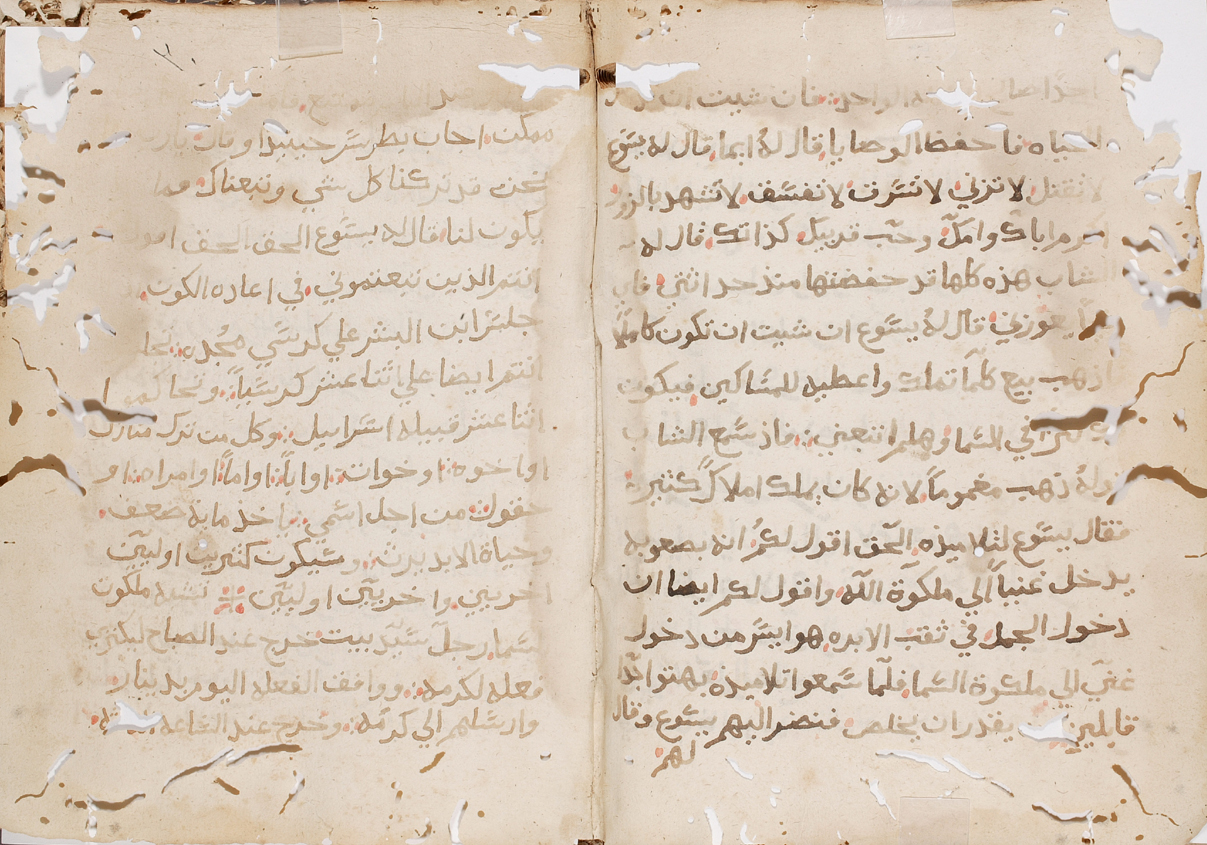 احدا صالح الواحد فان شيت ان
الحياه فاحفظ الوصايا قال له ايما قال له يسوع
لا تقتل لا تزني لا تسرق لا تفسق لا تشهد بالزور
اكرم اباك وامك وحب قريبك كذاتك قال له
الشاب هذه كلها قد حفضتها منذ حداثتي فاي
يعوزني قال له يسوع ان شيت ان تكون كاملا
اذهب بيع كلما تملك واعطيه للمساكين فيكون
لك كنز في السما وهلم اتبعني فاذ سمع الشاب
قوله ذهب مغموما لانه كان يملك املاك كثيره
فقال يسوع لتلاميذه الحق اقول لكم انه بصعوبه
يدخل غنيا الي ملكوة الله واقول لكم ايضا ان
دخول الجمل في ثقب الابره هو ايسر من دخول
غني الي ملكوة السما فلما سمعوا تلاميذه بهتوا ابدا
قايلين يقدر ان يخلص فنضر اليهم يسوع وقال
لهم
عند
ممكن اجاب بطرس حينيدا وقال يارب
نحن قد تركنا كل شي وتبعناك فما
يكون لنا قال له يسوع الحق الحق اقول
انتم الذين تبعتموني في اعاده الكون
جلس ابن البشر علي كرسي مجده تجلسوا
انتم ايضا علي اثنا عشر كرسيا وتحاكموا
اثنا عشر قبيله اسراييل وكل من ترك منازل
او اخوه او خوات او ابا او اما او امراه او
حقول من اجل اسمي ياخد مايه ضعف
وحياة الابد يرث وسيكون كثيرين اوليين
اخريين واخريين اوليين تشبه ملكوت
السما رجل سيد بيت خرج عند الصباح ليكتري
فعله لكرمه ووافق الفعله اليوم بدينار
وارسلهم الي كرمه وخرج عند الساعه